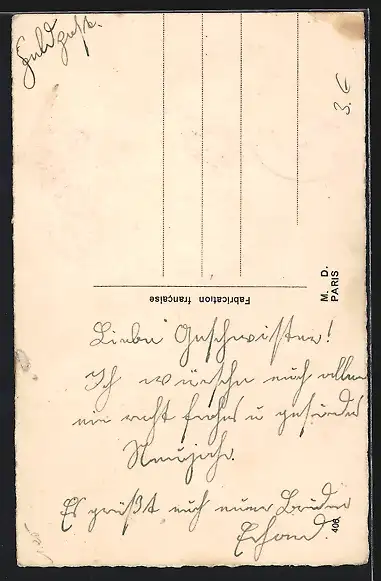 Feldpost.
3. C
M. D.
PARIS
Fabrication française
Liebe Geschwister!
Ich wünsche euch allen
ein recht frohes u gesundes
Neujahr.
Es grüßt euch euer Bruder
Erhard
406